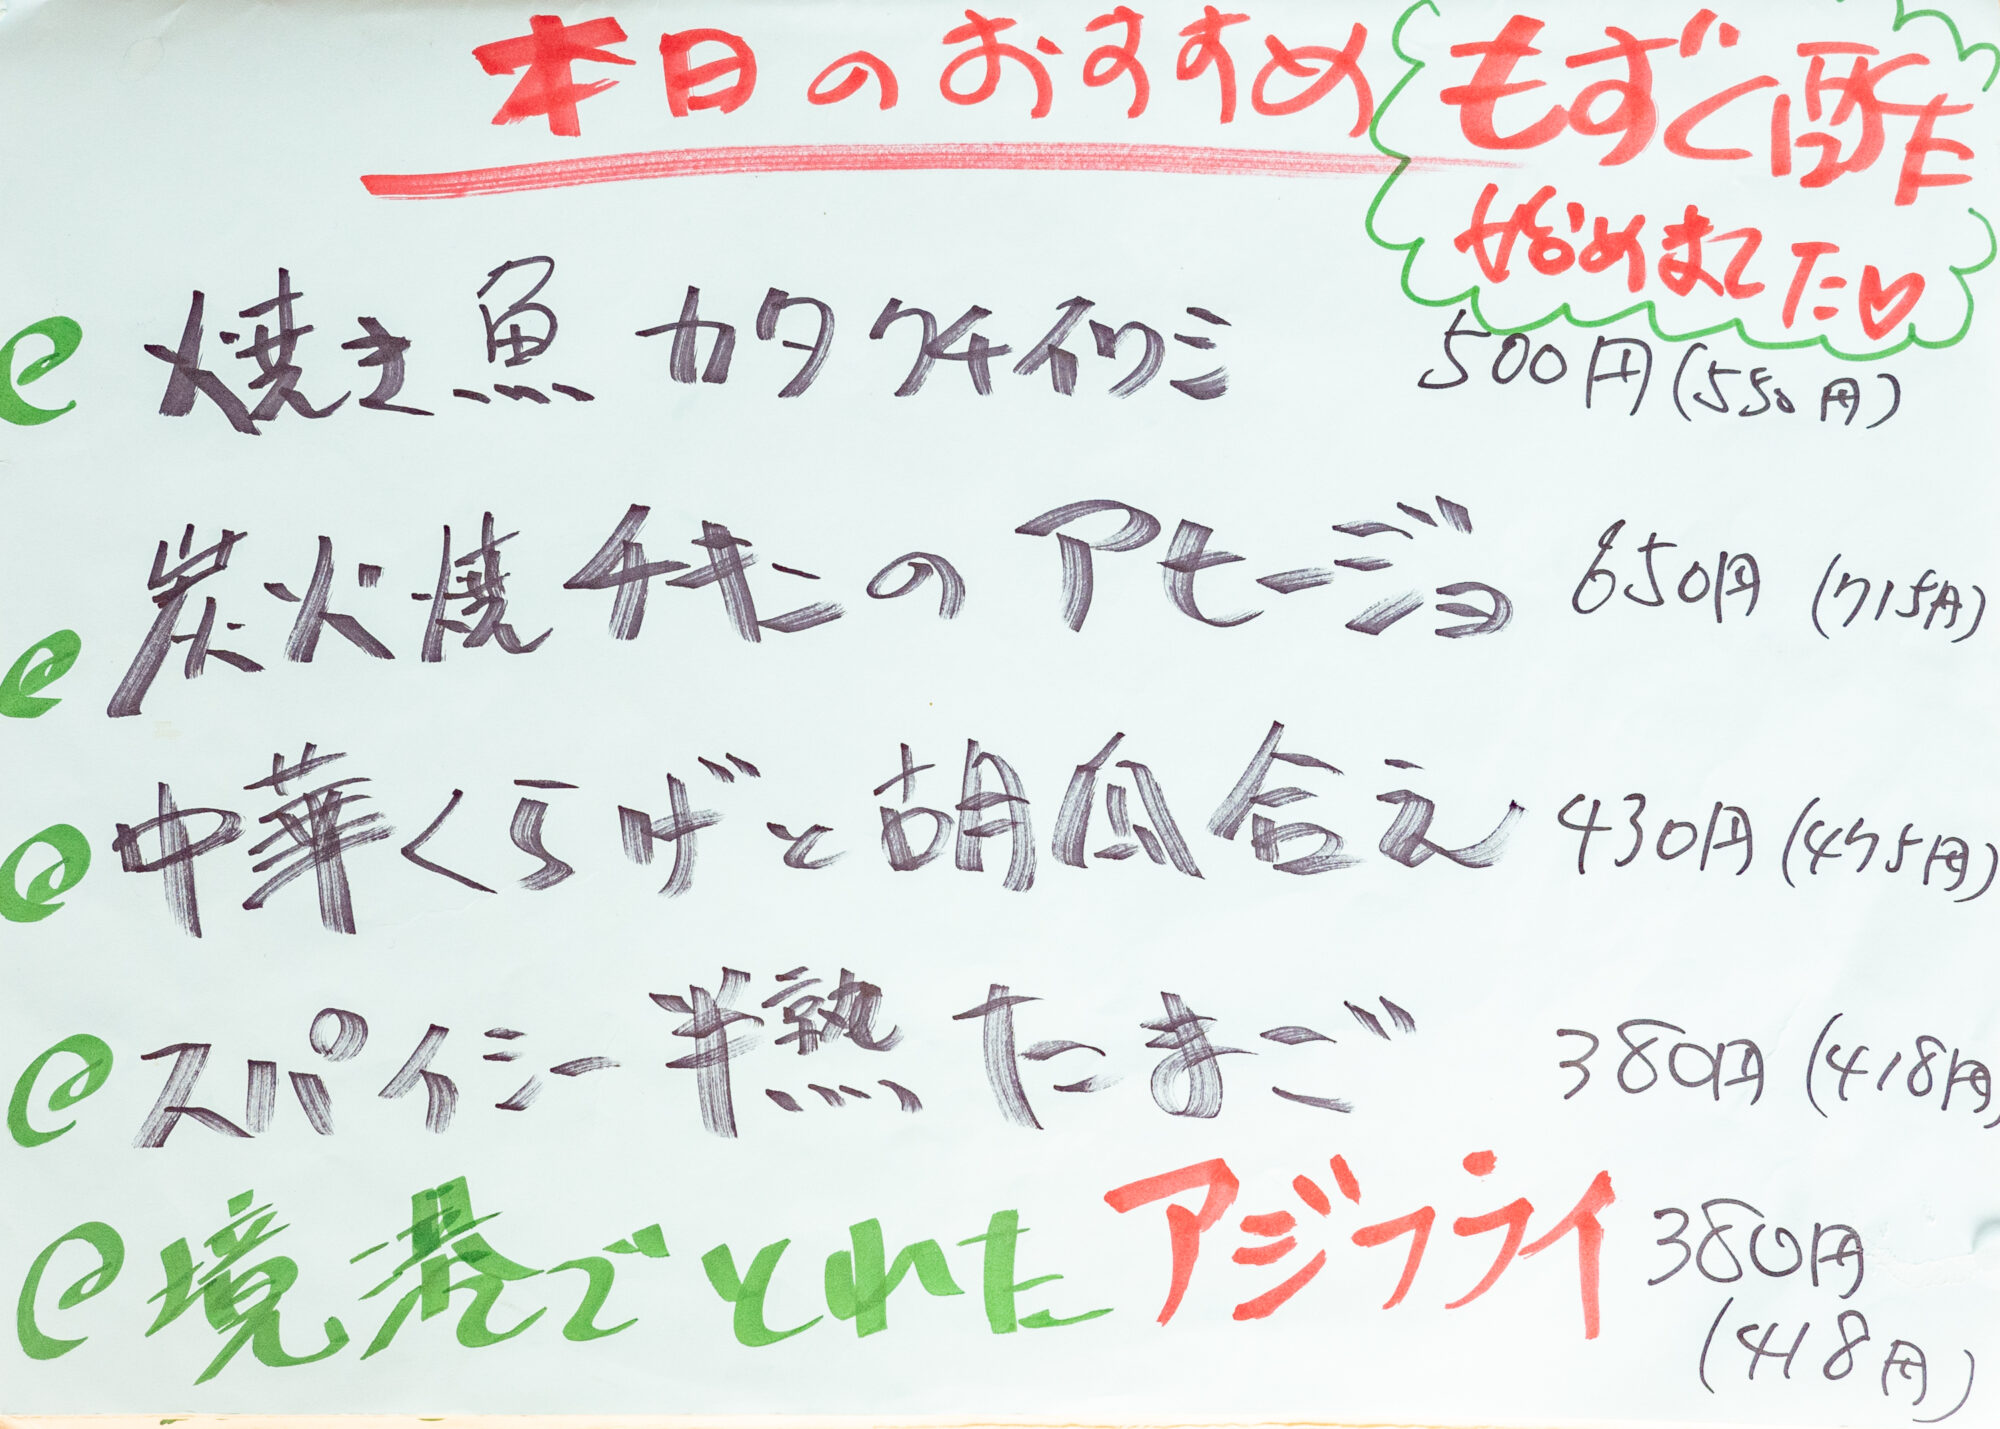 本日のおすすめ
もずく酢
始めました♡
焼き魚 カタクチイワシ 500円(550円)
炭火焼チキンのアヒージョ 650円(715円)
中華くらげと胡瓜合え 430円(475円)
スパイシー半熟たまご 380円(418円)
境港でとれたアジフライ 380円
(418円)